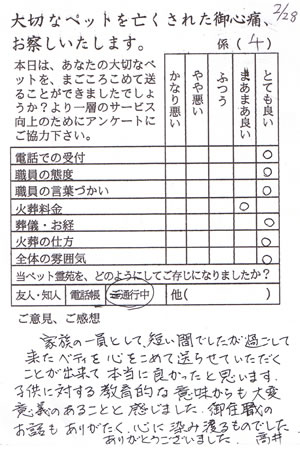 大切なペットを亡くされた御心痛、
お察しいたします。
2/28
係(4)
本日は、あなたの大切なペッ
トを、まごころこめて送
ることができましたでしょ
うか?より一層のサービス
向上のためにアンケートに
ご協力下さい。
かなり悪い
やや悪い
ふつう
まあまあ良い
とても良い
電話での受付 ○
職員の態度 ○
職員の言葉づかい ○
火葬料金 ○
葬儀・お経 ○
火葬の仕方 ○
全体の雰囲気 ○
当ペット霊苑を、どのようにしてご存じになりましたか?
友人・知人 電話帳 ご通行中 他( )
ご意見、ご感想
家族の一員として、短い間でしたが過ごして
来たペティを心をこめて送らせていただく
ことが出来て本当に良かったと思います。
子供に対する教育的な意味からも大変
意義のあることと感じました。御住職の
お話もありがたく、心に染み渡るものでした
ありがとうございました。 高井